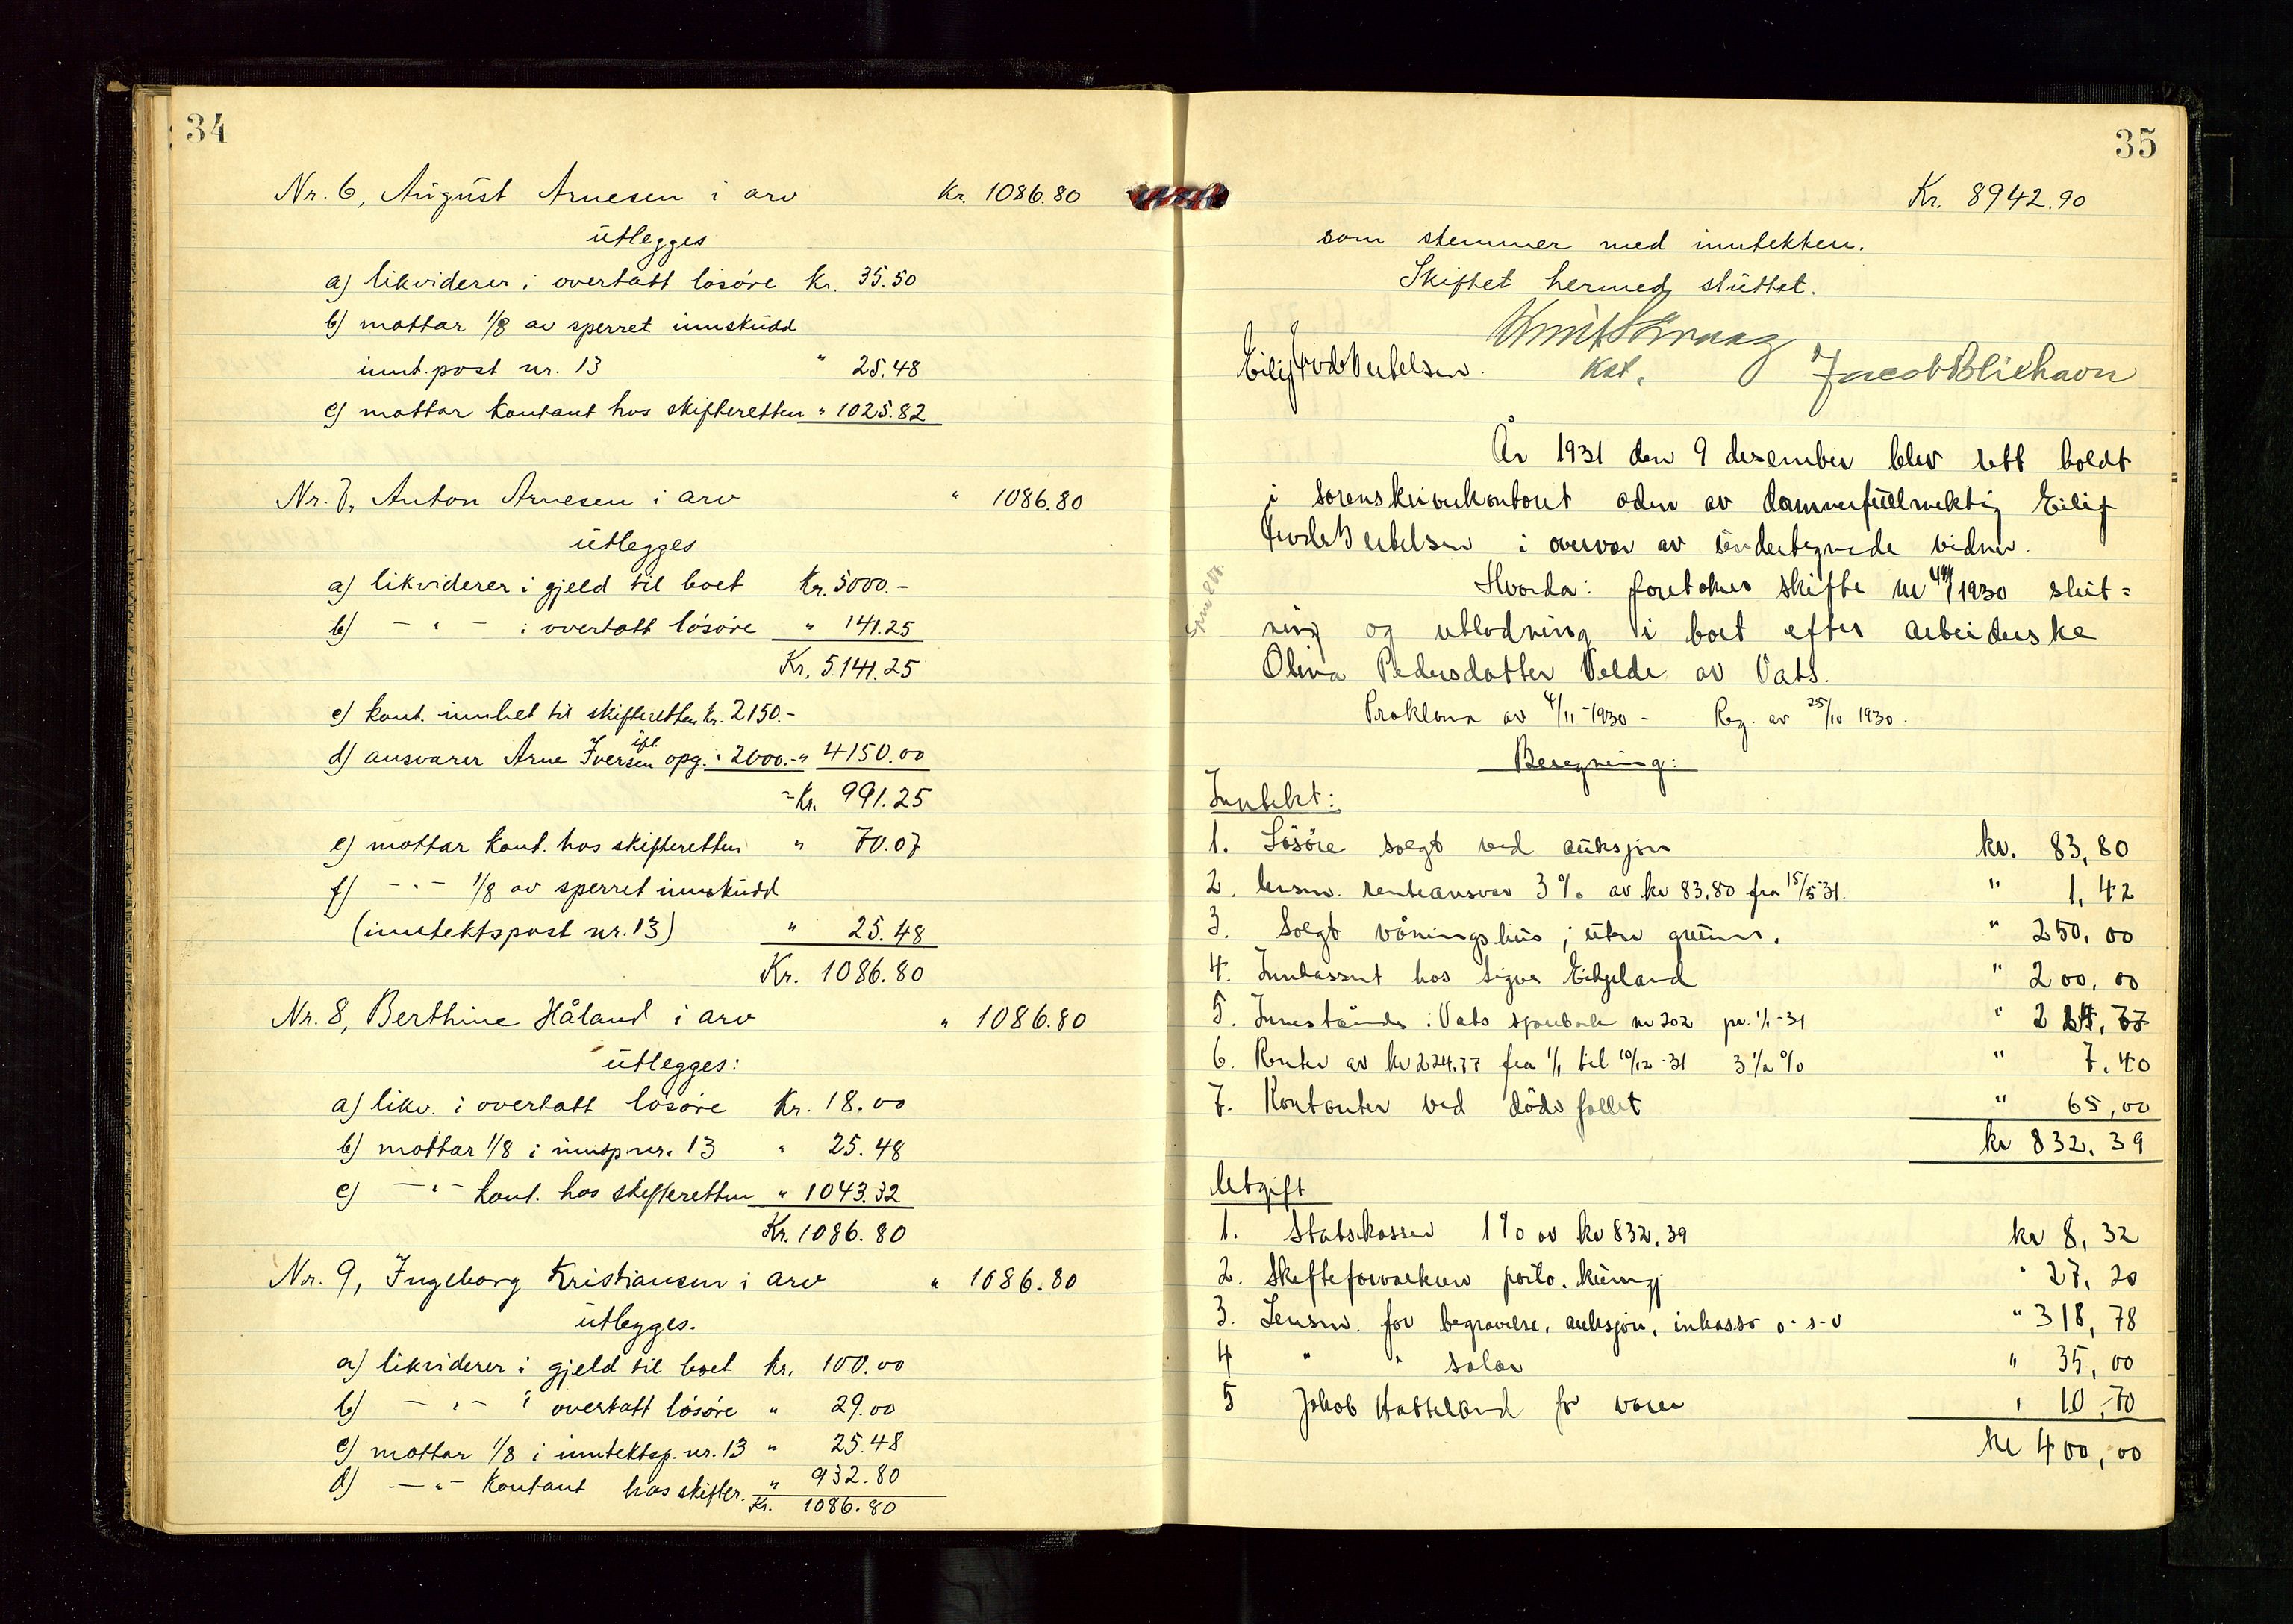 34
Nr. 6, August Arnesen i arv Kr. 1086.80
utlegges
a) likviderer i overtatt løsøre Kr. 35.50
b) mottar 1/8 av sperret innskudd
innt. post nr. 13 " 25.48
c) mottar kontant hos skifteretten " 1025.82
Nr. 7, Anton Arnesen i arv " 1086.80
utlegges
a) likviderer i gjeld til boet Kr. 5000.-
b) - " - i overtatt løsøre " 141.25
Kr. 5.141.25
c) kont. innbet til skifteretten kr. 2150.-
d) ansvarer Arne Iversen ifl. opg. " 2000.- " 4150.00
- Kr. 991.25
e) mottar kont. hos skifteretten " 70.07
f) - " - 1/8 av sperret innskudd
(inntektspost nr. 13) " 25.48
Kr. 1086.80
Nr. 8, Berthine Håland i arv " 1086.80
utlegges:
a) likv. i overtatt løsøre Kr. 18.00
b) mottar 1/8 i innt.p nr. 13 " 25.48
c) - " - kont. hos skifteretten " 1043.32
Kr. 1086.80
Nr. 9, Ingeborg Kristiansen i arv " 1086.80
utlegges.
a) likviderer i gjeld til boet kr. 100.00
b) - " - i overtatt løsøre " 29.00
c) mottar 1/8 i inntektsp. nr. 13 " 25.48
d) - " - kontant hos skifter. " 932.80
Kr. 1086.80
35
Kr. 8942.90
som stemmer med inntekten.
Skiftet hermed sluttet.
Kst.
Jacob Bliehavn
År 1931 den 9 desember blev rett holdt
i sorenskriverkontoret Ølen av dommerfullmektig Eilif
i overvær av undertegnede vidner.
Hvorda: foretokes skifte nr 44/1930 slut=
ning og utlodning i boet efter arbeiderske
Olina Pedersdatter Velde av Vats.
Proklama av 4/11-1930 - Reg. av 25/10 1930.
Beregning:
Inntekt:
1. Løsøre solgt ved auksjon kr. 83,80
2. lensm. renteansvar 3% av kr 83,80 fra 15/5-31. " 1,42
3. Solgt våningshus; uten grunn. " 250,00
4. Innkassert hos Sigva Eikeland " 200,00
5. Innestående i Vats sparebank nr 202 pr. 1/1-31 " 224,77
6. Renter av kr 224.77 fra 1/1 til 10/12-31 3 1/2 % " 7.40
7. Kontanter ved dødsfallet " 65,00
kr 832.39
Utgift
1. Statskassen 1% av kr 832.39 kr 8,32
2. Skifteforvalteren porto. kunngj " 27,20
3. Lensm. for begravelse, auksjon, inkasso o-s-v " 318,78
4 " " salær " 35,00
5 Jakob Hatteland for varer " 10,70
kr 400,00